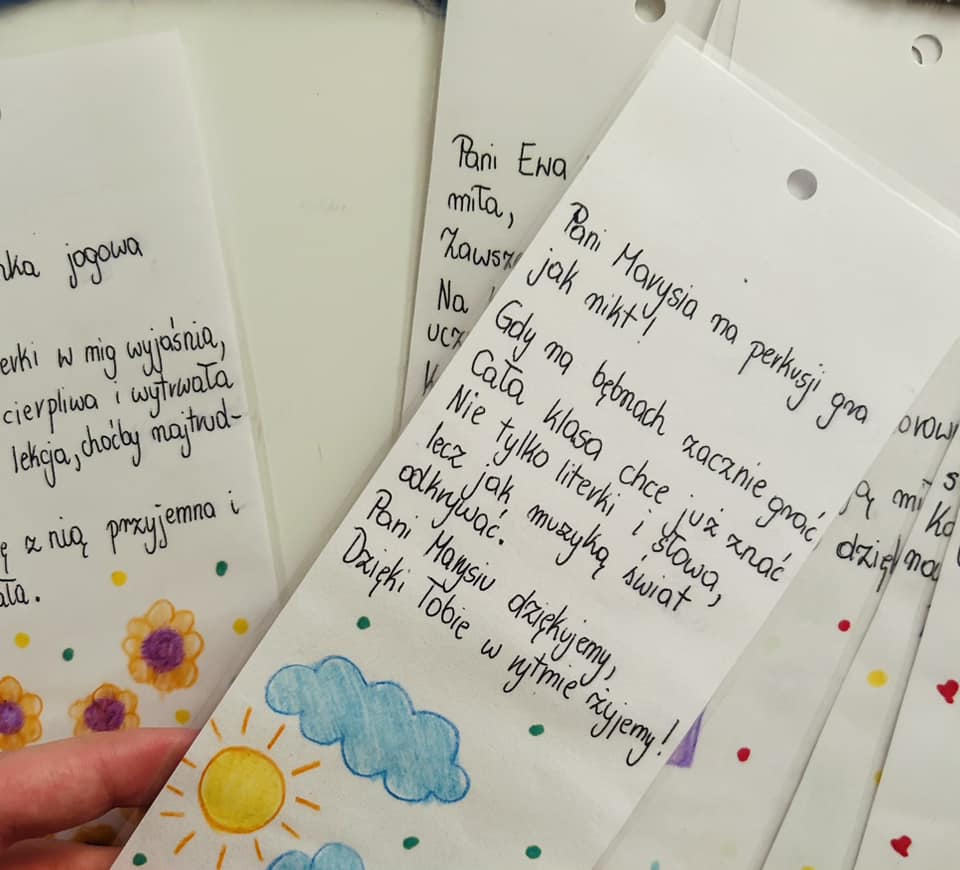 jogowa
w mig wyjaśnia,
cierpliwa i wytrwała
lekcja, choćby najtrud-
z nią przyjemna i
Pani Ewa
miła,
Na
Pani Marysia na perkusji gra
jak nikt!
Gdy na bębnach zacznie grać
Cała klasa chce już znać
Nie tylko literki i słowa,
lecz jak muzyką świat
odkrywać.
Pani Marysiu dziękujemy,
Dzięki Tobie w rytmie żyjemy!